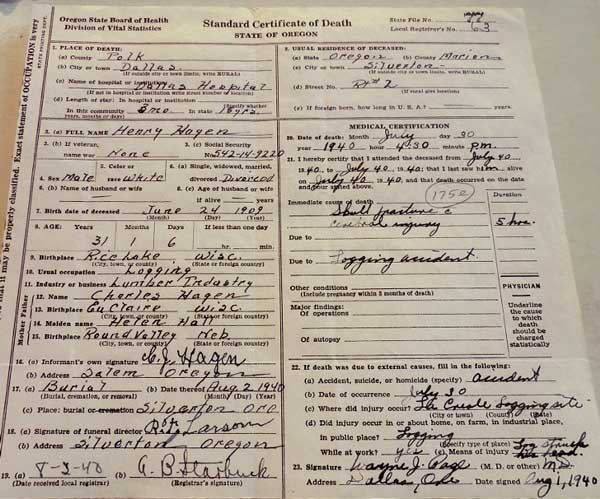 Oregon State Board of Health
Division of Vital Statistics
Standard Certificate of Death
STATE OF OREGON
State File No.
Local Registrar's No. 63
1. PLACE OF DEATH:
(a) County Polk
(b) City or town Dallas
(If outside city or town limits, write RURAL)
(c) Name of hospital or institution:
Dallas Hospital
(If not in hospital or institution write street number or location)
(d) Length of stay: In hospital or institution
(Specify whether
In this community 3 mo. In state 18 yrs.
years, months or days)
2. USUAL RESIDENCE OF DECEASED:
(a) State Oregon (b) County Marion
(c) City or town Silverton
(If outside city or town limits, write RURAL)
(d) Street No. Rt # 2
(If rural give location)
(e) If foreign born, how long in U. S. A.? years.
3. (a) FULL NAME Henry Hagen
3. (b) If veteran, 3. (c) Social Security
name war None No. 542-14-9220
4. Sex Male 5. Color or race White 6. (a) Single, widowed, married, divorced Divorced
6. (b) Name of husband or wife 6. (c) Age of husband or wife
if alive years
7. Birth date of deceased June 24 1909
(Month) (Day) (Year)
8. AGE: Years Months Days If less than one day
31 1 6 hr. min.
9. Birthplace Rice Lake Wisc.
(City, town, or county) (State or foreign country)
10. Usual occupation Logging
11. Industry or business Lumber Industry
Mother Father
12. Name Charles Hagen
13. Birthplace Eu Claire Wisc
(City, town, or county) (State or foreign country)
14. Maiden name Helen Hall
15. Birthplace Round Valley Neb.
(City, town, or county) (State or foreign country)
16. (a) Informant's own signature C. J. Hagen
(b) Address Salem Oregon
17. (a) Burial (b) Date thereof Aug 2 1940
(Burial, cremation, or removal) (Month) (Day) (Year)
(c) Place: burial or cremation Silverton Ore
18. (a) Signature of funeral director Larson
(b) Address Silverton Oregon
19. (a) 8-3-40 (b) C. B. Starbuck
(Date received local registrar) (Registrar's signature)
MEDICAL CERTIFICATION
20. Date of death: Month July day 30
year 1940 hour 4:30 minute P.m.
21. I hereby certify that I attended the deceased from July 40,
1940, to July 40, 1940; that I last saw him alive
on July 40, 1940; and that death occurred on the date
and hour stated above.
1752
Duration
Immediate cause of death
Skull fracture c
cerebral injury 5 hrs.
Due to
Due to Logging accident.
Other conditions
(Include pregnancy within 3 months of death)
Major findings:
Of operations
Of autopsy
PHYSICIAN
Underline
the cause
to which
death
should be
charged
statistically
22. If death was due to external causes, fill in the following:
(a) Accident, suicide, or homicide (specify) accident
(b) Date of occurrence July 30
(c) Where did injury occur? La Creole Logging site
(City or town) (County) (State)
(d) Did injury occur in or about home, on farm, in industrial place,
in public place? Logging
(Specify type of place)
While at work? yes (e) Means of injury Log struck
his head.
23. Signature Wayne J. Page (M. D. or other) M.D.
Address Dallas, Ore Date signed Aug 1, 1940
it may be properly classified. Exact statement of OCCUPATION is very